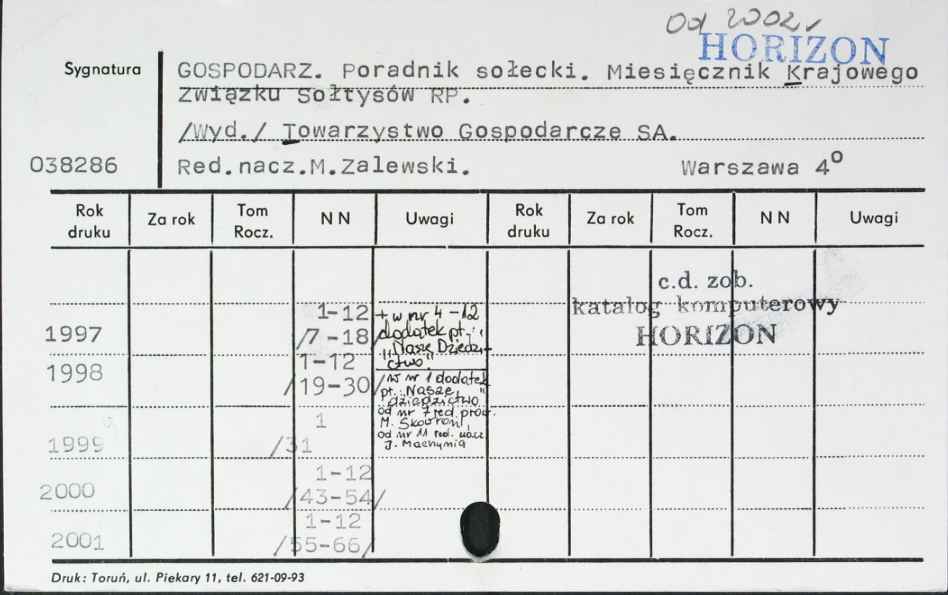 Od 2002
HORIZON
Sygnatura
GOSPODARZ. Poradnik sołecki. Miesięcznik Krajowego
Związku Sołtysów RP.
/Wyd./ Towarzystwo Gospodarcze SA.
038286 Red.nacz.M.Zalewski. Warszawa 4°
Rok druku Za rok Tom Rocz. N N Uwagi Rok druku Za rok Tom Rocz. N N Uwagi
c.d. zob.
katalog komputerowy
HORIZON
1997 1-12
/7-18/
+ w nr 4-12
dodatek pt.
"Nasze Dziedzi-
ctwo"
1998 1-12
/19-30/
/w nr 1 dodatek
pt. "Nasze
dziedzictwo"
od nr 7 red. prow.
M.
od nr 11 red. nacz.
J. Machynia
1999 1
/31
2000 1-12
/43-54/
2001 1-12
/55-66/
Druk: Toruń, ul. Piekary 11, tel. 621-09-93